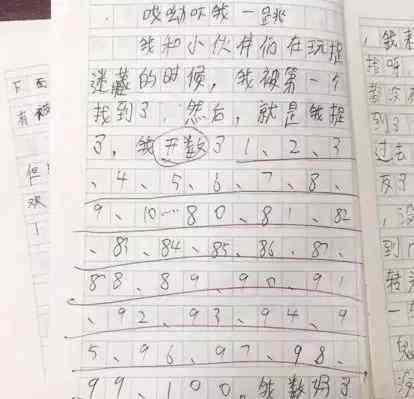 哎呦吓我一跳
我和小伙伴们在玩捉
迷藏的时候，我被第一个
找到了，然后，就是我捉
了，我开数了1、2、3
、4、5、6、7、8、
9、10……80、81、82
、83、84、85、86、87、
88、89、90、91
、92、93、94、9
5、96、97、98、
99、100，我数好了
下面
有被
但
欢
，我来
找呀
到了
过去
，没
到
转
一